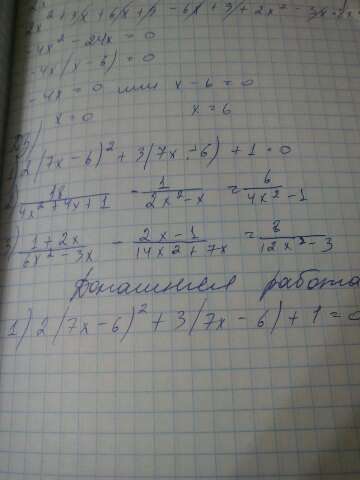 -4x² - 24x = 0
-4x(x - 6) = 0
-4x = 0 или x - 6 = 0
x = 0 x = 6
ДЗ)
1) 2(7x - 6)² + 3(7x - 6) + 1 = 0
2) 18/(4x² + 4x + 1) - 1/(2x² - x) = 6/(4x² - 1)
3) (1 + 2x)/(6x² - 3x) - (2x - 1)/(14x² + 7x) = 8/(12x² - 3)
Домашняя работа
1) 2(7x - 6)² + 3(7x - 6) + 1 = 0